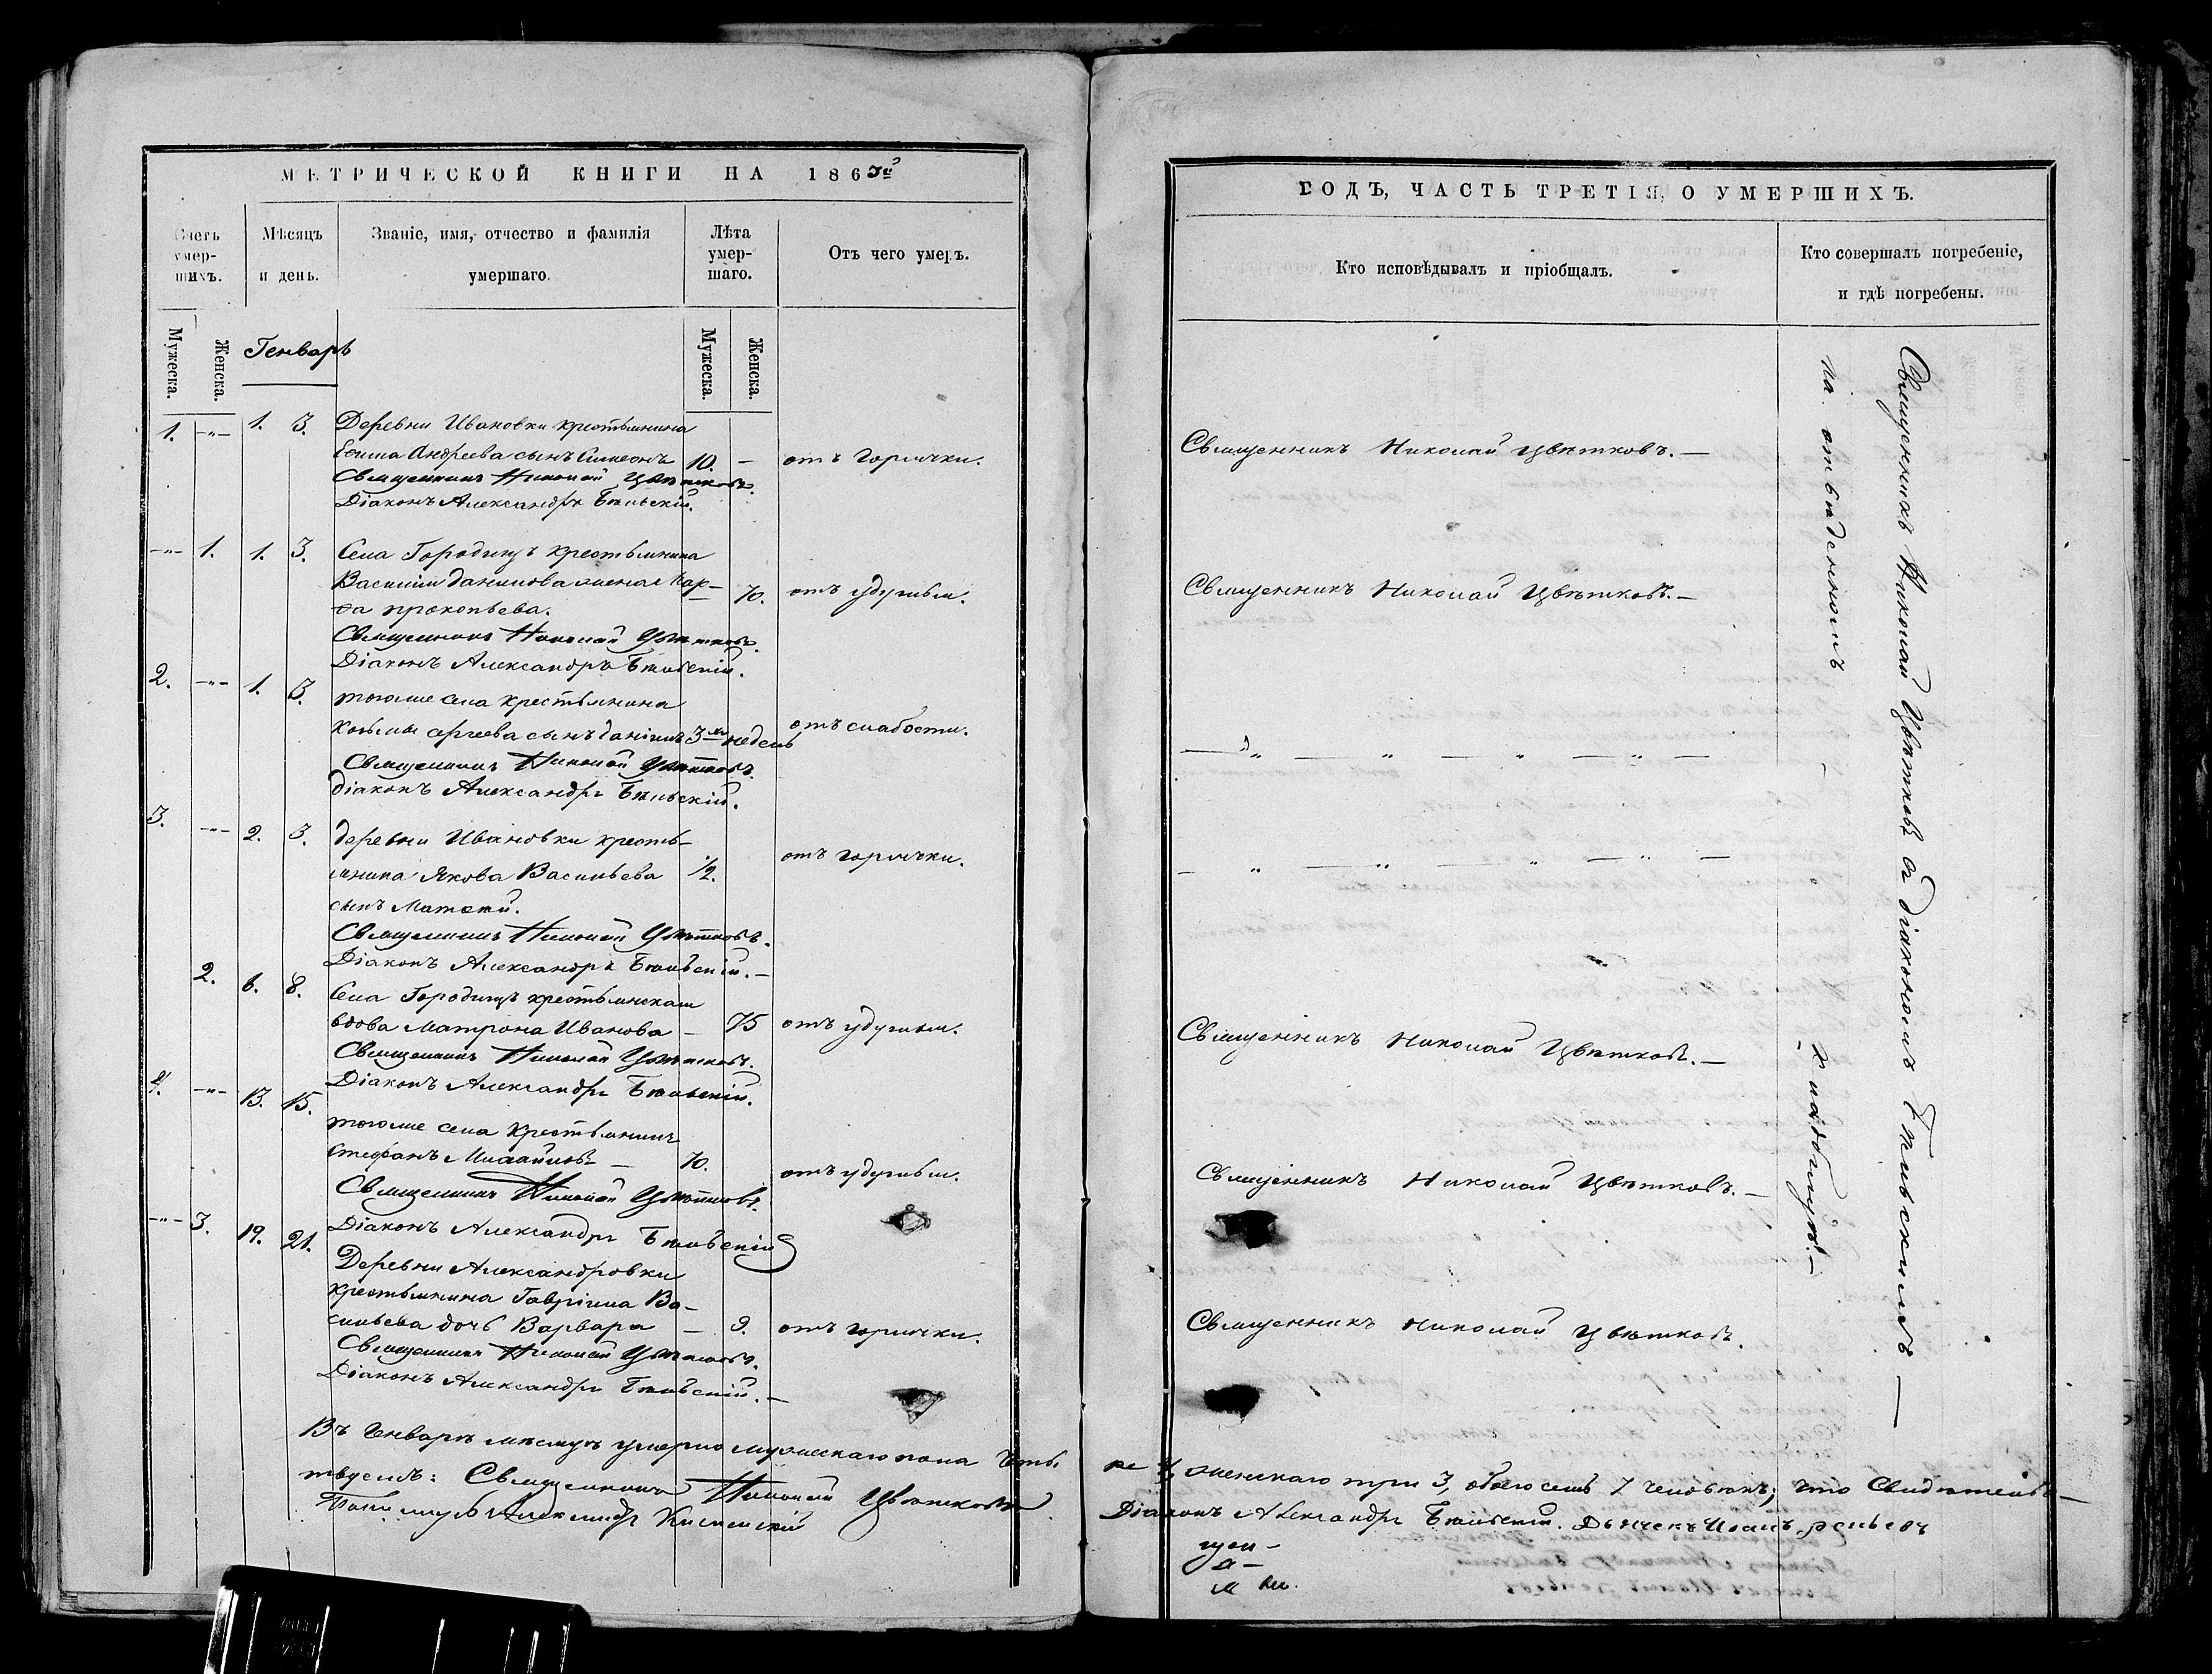 МЕТРИЧЕСКОЙ КНИГИ НА 1863й
Счетъ умер-шихъ.
Мѣсяцъ и день.
Званіе, имя, отчество и фамилія умершаго.
Лѣта умер-шаго.
Отъ чего умеръ.
Мужеска.
Женска.
Генварь
Мужеска.
Женска.
1. -"- 1. 3. Деревни Ивановки крестьянина
Андреева сынъ Симеонъ 10. — отъ горячки.
Священникъ Николай Цвѣтковъ.
Діаконъ Александръ Бѣльскій.
-"- 1. 1. 3. Села Городищъ крестьянина
Василія Данилова жена Мар-
ѳа Прокопьева. — 70. отъ удушья.
Священникъ Николай Цвѣтковъ.
Діаконъ Александръ Бѣльскій.
2. -"- 1. 3. тогоже села крестьянина
Козьмы Сргеева сынъ Даніилъ 3хъ недель отъ слабости.
Священникъ Николай Цвѣтковъ.
Діаконъ Александръ Бѣльскій.
3. -"- 2. 3. деревни Ивановки кресть-
янина Якова Васильева 1/2. отъ горячки.
сынъ Матѳей.
Священникъ Николай Цвѣтковъ.
Діаконъ Александръ Бѣльскій. —
2. 6. 8. Села Городищъ крестьянская
вдова Матрона Иванова — 75 отъ удушья.
Священникъ Николай Цвѣтковъ.
Діаконъ Александръ Бѣльскій.
4. -"- 13. 15. тогоже села Крестьянинъ
Стефанъ Михайловъ — 70. отъ удушья.
Священникъ Николай Цвѣтковъ.
Діаконъ Александръ Бѣльскій
-"- 3. 19. 21. Деревни Александровки
крестьянина Гавріила Ва-
сильева дочь Варвара — 9. отъ горячки.
Священникъ Николай Цвѣтковъ.
Діаконъ Александръ Бѣльскій. —
Въ Генварѣ мѣсяцѣ умерло мужескаго пола четы
твуемъ: Священникъ Николай Цвѣтковъ
Александръ
ГОДЪ, ЧАСТЬ ТРЕТІЯ, О УМЕРШИХЪ.
Кто исповѣдывалъ и пріобщалъ.
Кто совершалъ погребеніе, и гдѣ погребены.
Священникъ Николай Цвѣтковъ. —
Священникъ Николай Цвѣтковъ. —
— " — " — " — " —
— " — " — " — " —
Священникъ Николай Цвѣтковъ. —
Священникъ Николай Цвѣтковъ. —
Священникъ Николай Цвѣтковъ.
Священникъ Николай Цвѣтковъ съ діакономъ Бѣльскимъ —
на отведенномъ — кладбищѣ. —
ре 4, женскаго три 3, обоего семь 7 человѣкъ; что Свидѣтельс—
Діаконъ Александръ Бѣльскій. Дьячекъ Иванъ